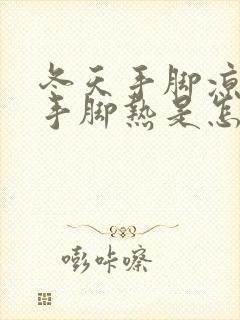 冬天手脚凉
手脚热是怎
嘭咔嚓